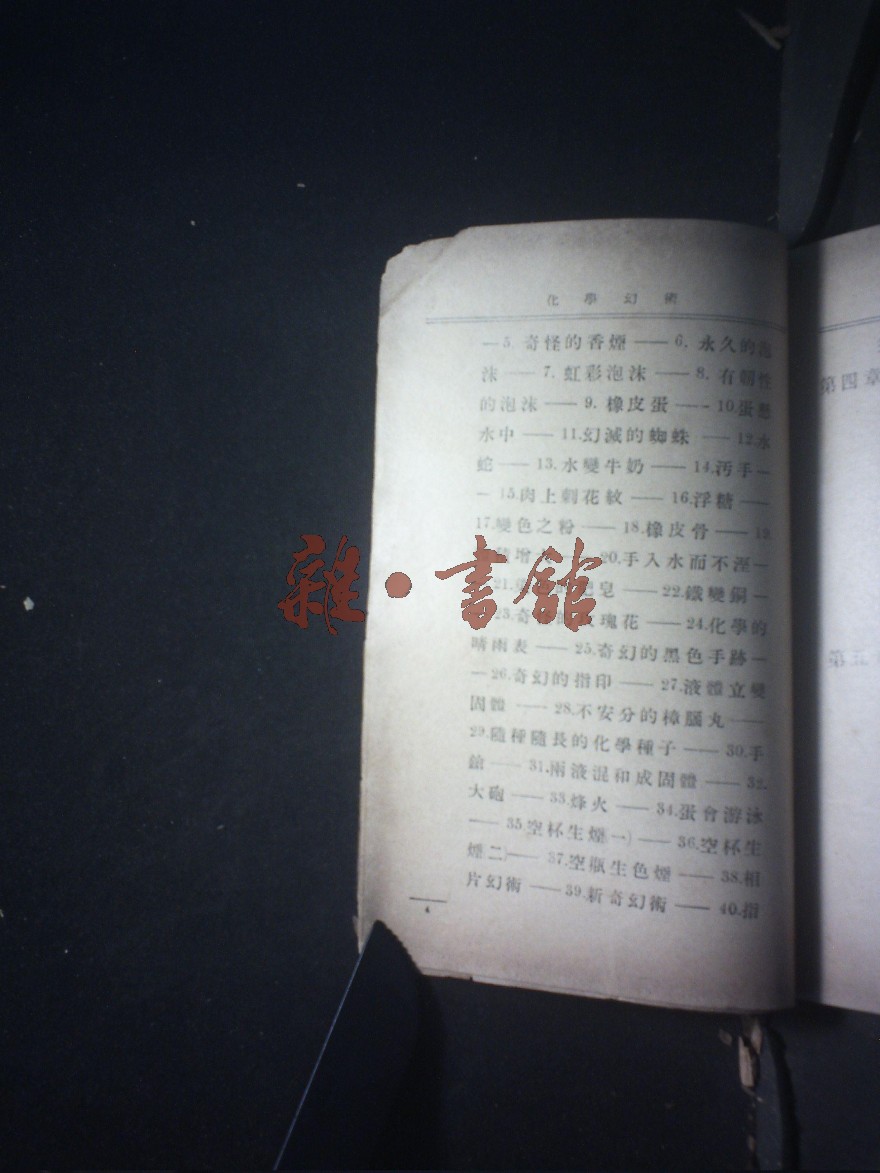 化學幻術
—5. 奇怪的香煙——6. 永久的泡
沫——7. 虹彩泡沫——8. 有韌性
的泡沫——9. 橡皮蛋——10.蛋懸
水中——11.幻滅的蜘蛛——12.水
蛇——13.水變牛奶——14.汚手—
—15.肉上刺花紋——16.浮糖——
17.變色之粉——18.橡皮骨——19.
增 20.手入水而不溼—
21. 皂——22.鐵變銅—
23.奇 玫瑰花——24.化學的
晴雨表——25.奇幻的黑色手跡—
—26.奇幻的指印——27.液體立變
固體——28.不安分的樟腦丸——
29.隨種隨長的化學種子——30.手
鎗——31.兩液混和成固體——32.
大砲——33.烽火——34.蛋會游泳
——35.空杯生煙(一)——36.空杯生
煙(二)——37.空瓶生色煙——38.相
片幻術——39.新奇幻術——40.指
4
第四章
第五
雜·書館